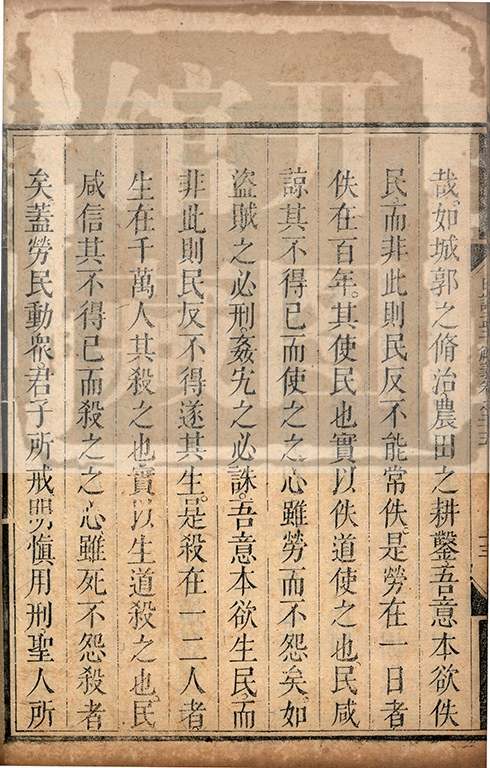 哉。如城郭之脩治農田之耕鑿吾意本欲佚
民而非此則民反不能常佚。是勞在一日者
佚在百年。其使民也實以佚道使之也。民咸
諒其不得已而使之之心雖勞而不怨矣。如
盜賊之必刑姦宄之必誅。吾意本欲生民而
非此則民反不得遂其生。是殺在一二人者
生在千萬人其殺之也實以生道殺之也。民
咸信其不得已而殺之之心雖死不怨殺者
矣蓋勞民動衆君子所戒明愼用刑聖人所